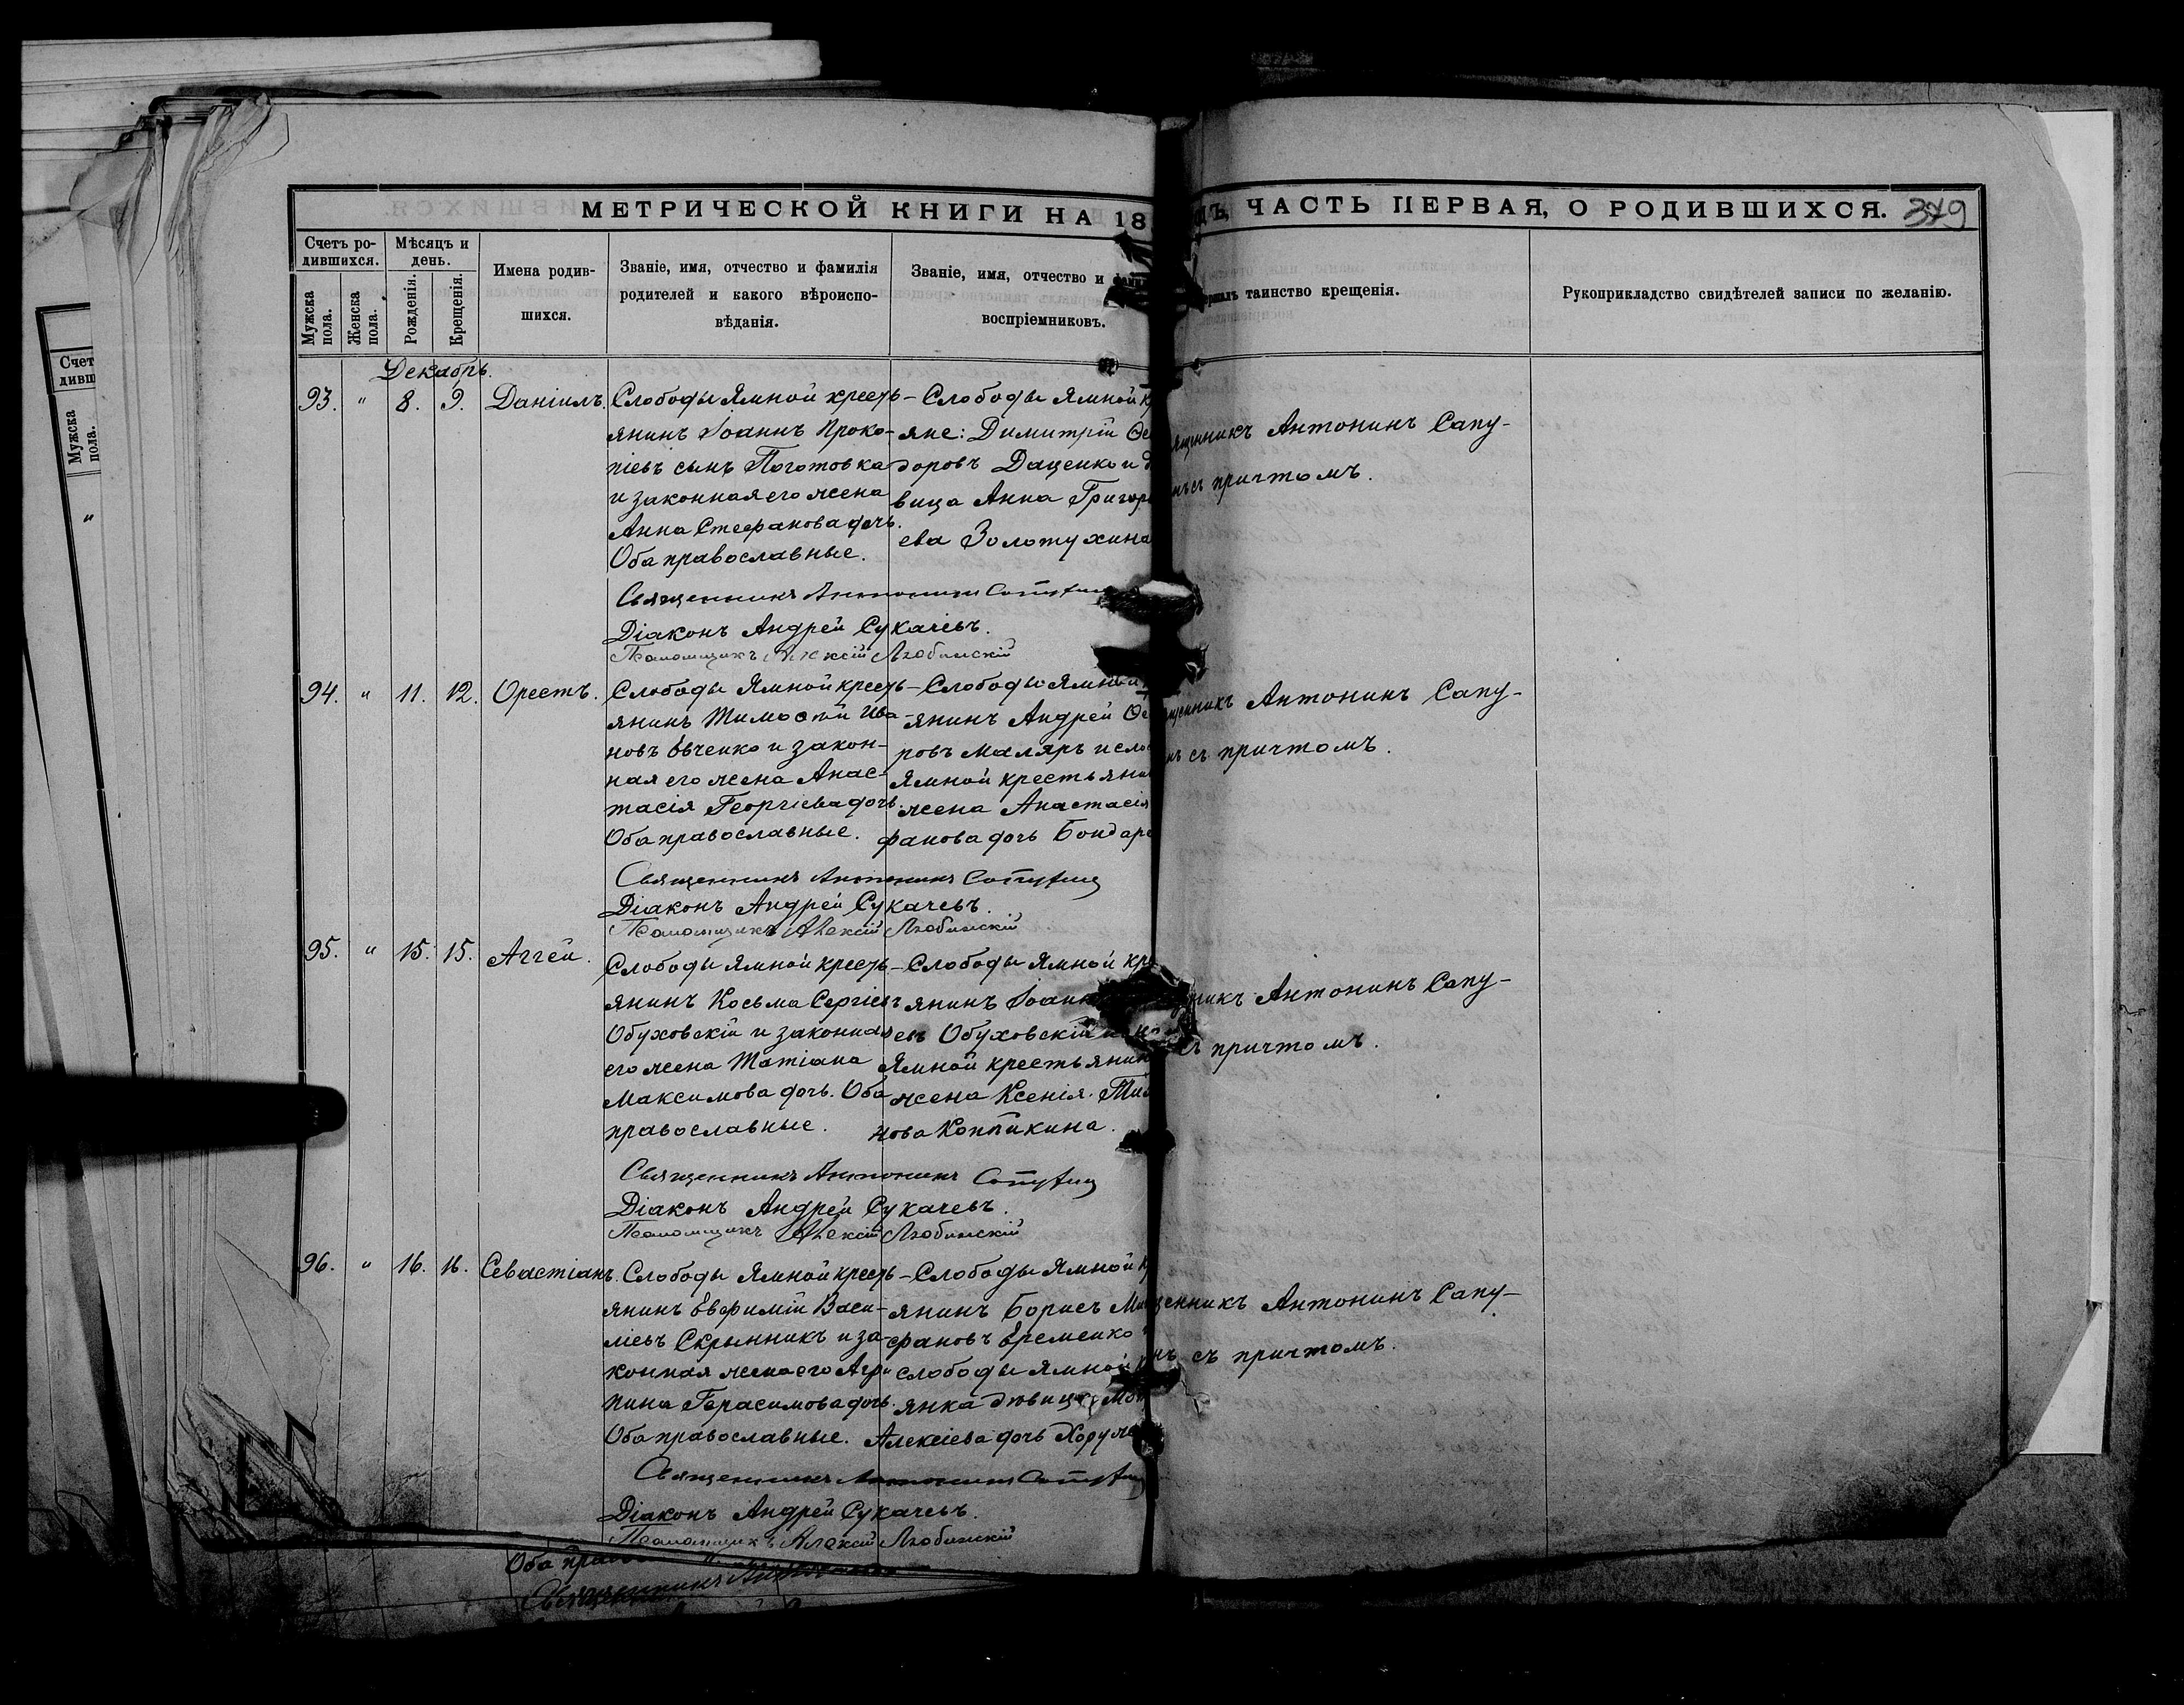 МЕТРИЧЕСКОЙ КНИГИ НА 18
ЧАСТЬ ПЕРВАЯ, О РОДИВШИХСЯ. 379
Счетъ ро-
дившихся.
Мужска
пола.
Женска
пола.
Мѣсяцъ и
день.
Рожденія.
Крещенія.
Имена родив-
шихся.
Званіе, имя, отчество и фамилія
родителей и какого вѣроиспо-
вѣданія.
Званіе, имя, отчество и
воспріемниковъ.
таинство крещенія.
Рукоприкладство свидѣтелей записи по желанію.
Декабрь.
93. " 8. 9. Даніилъ.
Слободы Ямной кресть-
янинъ Іоаннъ Проко-
піевъ сынъ Поготовка
и законная его жена
Анна Стефанова дочь.
Оба православные.
Слободы Ямной
яне: Димитрій Ѳео
доровъ Даценко и
вица Анна Григорь
ева Золотухина
Антонинъ Сапу-
съ причтомъ.
Священникъ Антонинъ
Діаконъ Андрей Сукачевъ.
Псаломщикъ Алексій Любинскій
94. " 11. 12. Орестъ.
Слободы Ямной кресть-
янинъ Тимоѳей Ива-
новъ Евченко и закон-
ная его жена Анас-
тасія Георгіева дочь.
Оба православные.
Слободы Ямной
янинъ Андрей Ѳео
ровъ Маляръ и сло
Ямной крестьянин
жена Анастасія
фанова дочь Бондар
Антонинъ Сапу-
съ причтомъ.
Священникъ Антонинъ
Діаконъ Андрей Сукачевъ.
Псаломщикъ Алексій Любинскій
95. " 15. 15. Аггей.
Слободы Ямной кресть-
янинъ Косьма Сергіевъ
Обуховскій и законная
его жена Татіана
Максимова дочь. Оба
православные.
Слободы Ямной кре
янинъ Іоаннъ
евъ Обуховскій и
Ямной крестьянин
жена Ксенія Тим
нова Коптикина.
Антонинъ Сапу-
съ причтомъ.
Священникъ Антонинъ
Діаконъ Андрей Сукачевъ.
Псаломщикъ Алексій Любинскій
96. " 16. 16. Севастіанъ.
Слободы Ямной кресть-
янинъ Евфимій Васи-
ліевъ Скрынникъ и за-
конная жена его Агри
пина Герасимова дочь.
Оба православные.
Слободы Ямной
янинъ Борисъ
фановъ Еременко
слободы Ямной
янка дѣвица
Алексіева дочь Хоруже
Антонинъ Сапу-
съ причтомъ.
Священникъ Антонинъ
Діаконъ Андрей Сукачевъ.
Псаломщикъ Алексій Любинскій
Оба
Священникъ